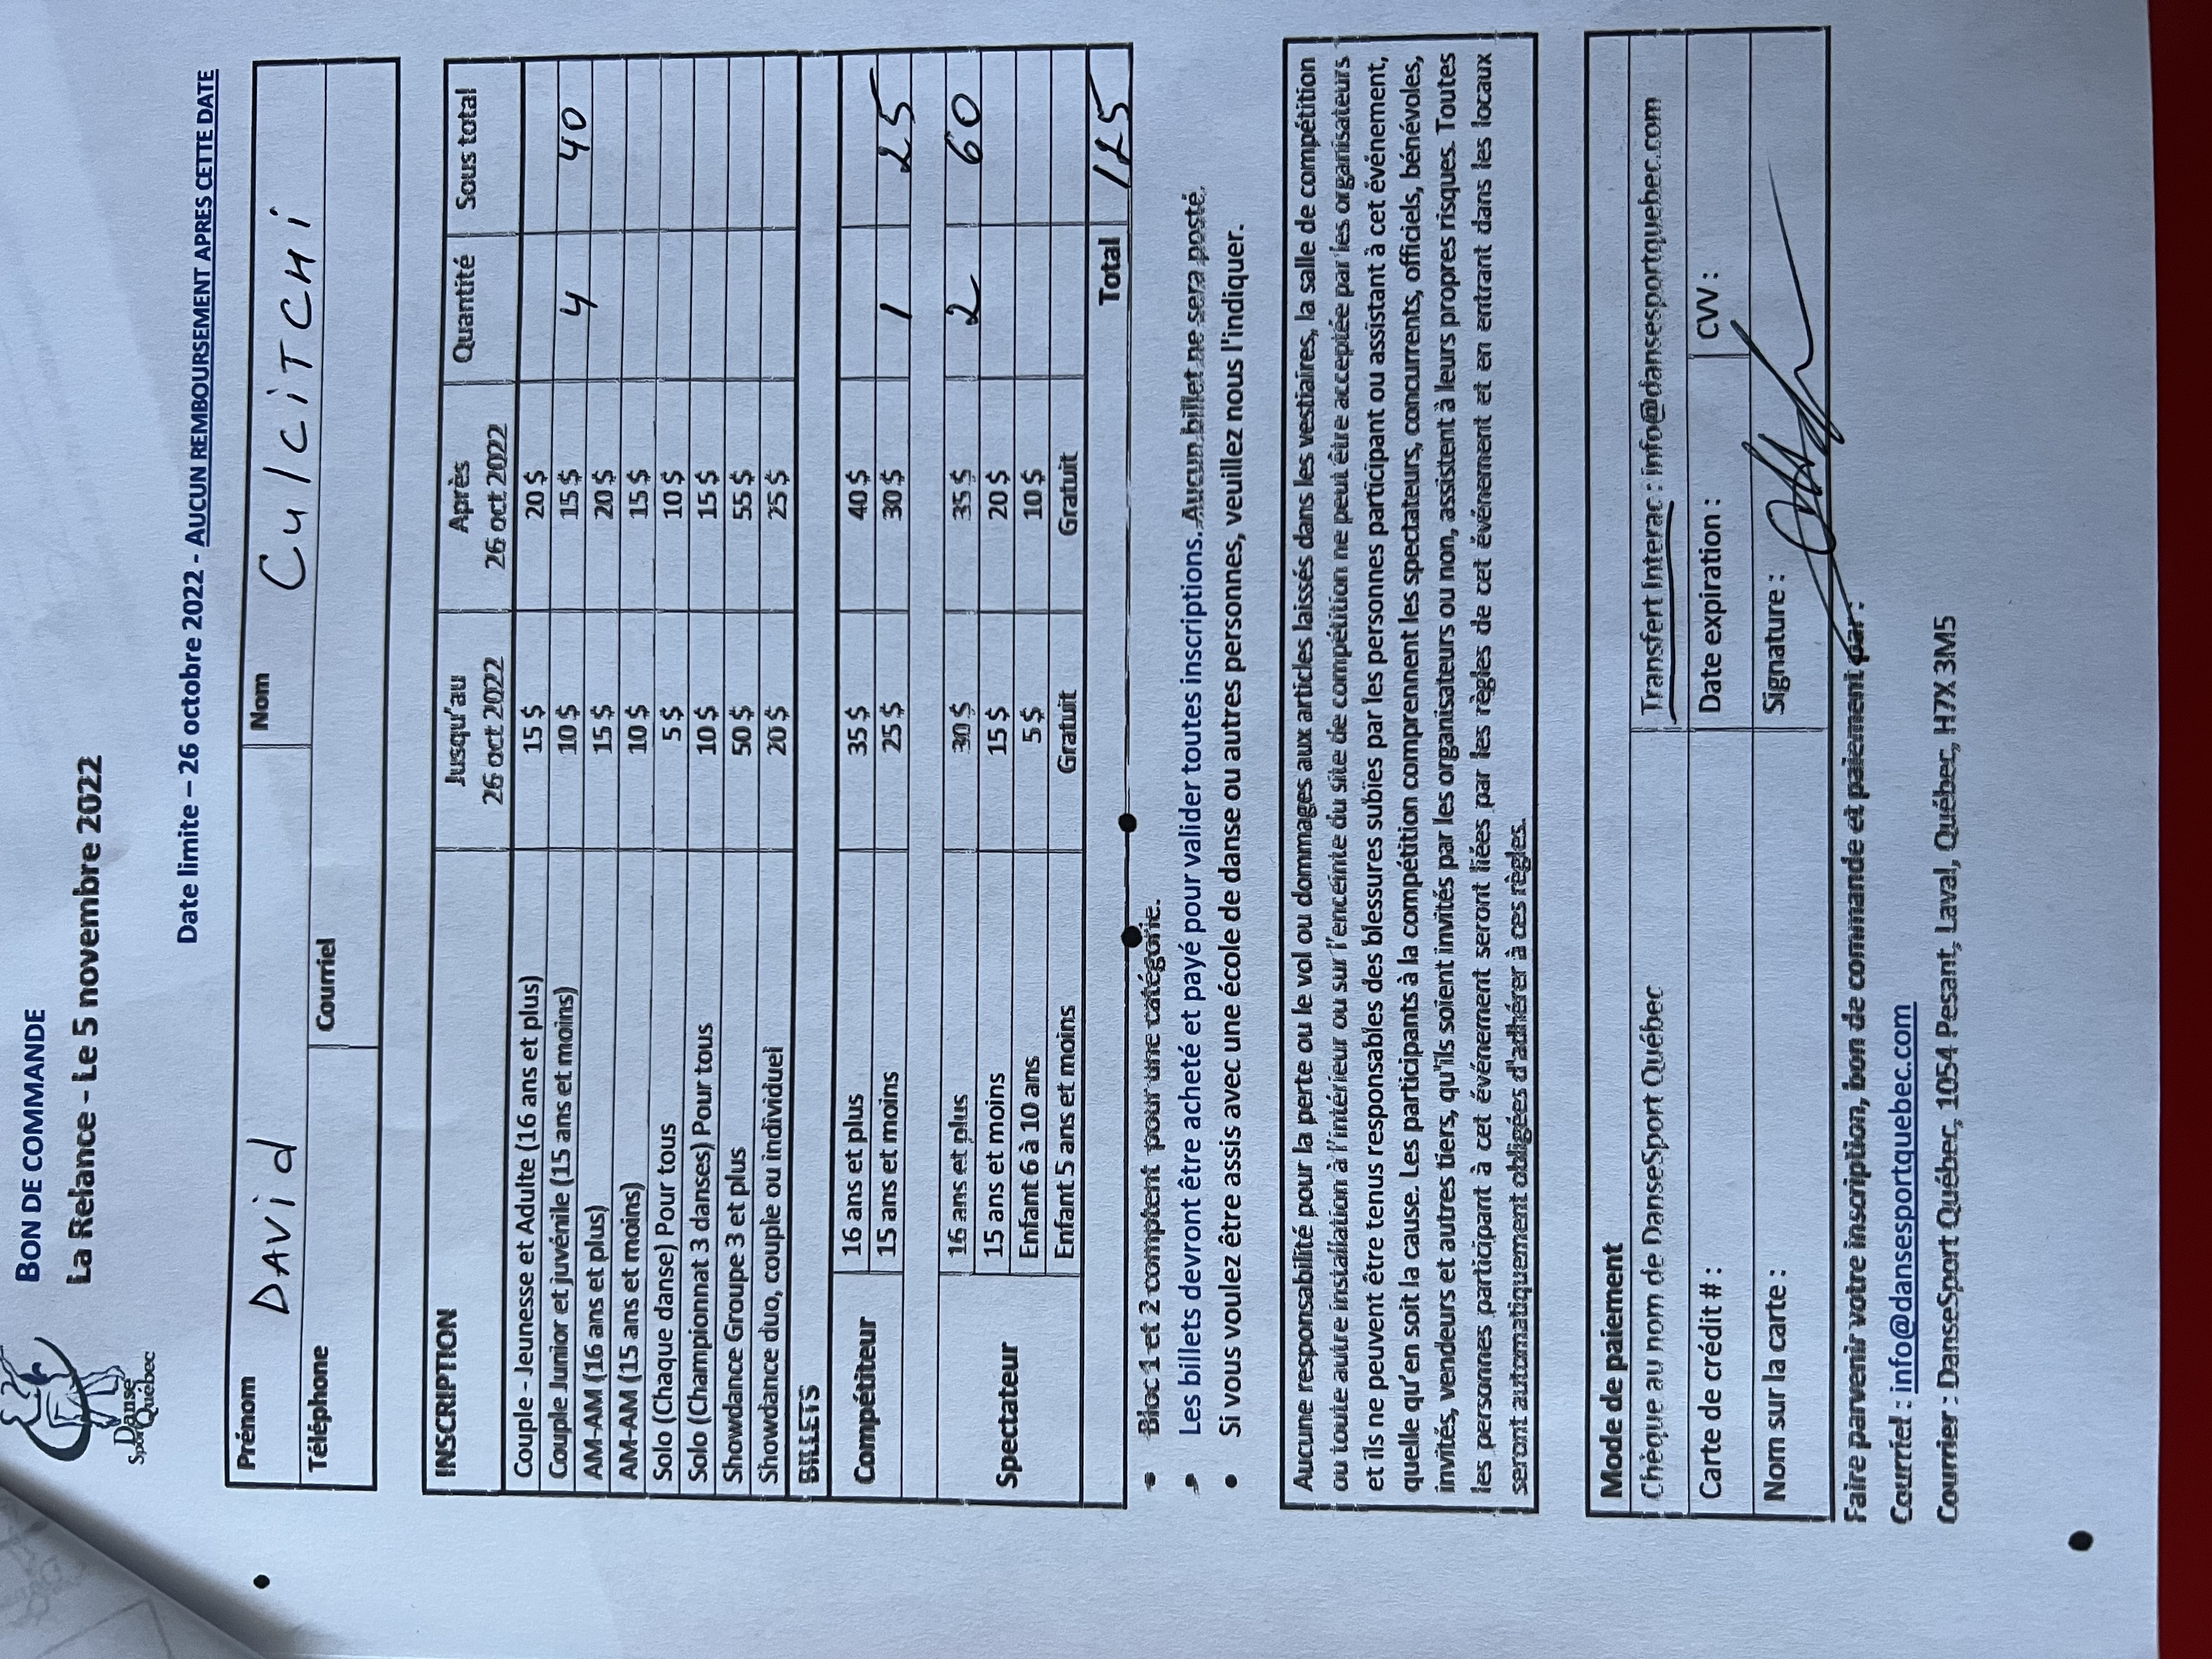 Danse
Sport Québec
BON DE COMMANDE
La Relance - Le 5 novembre 2022
Date limite – 26 octobre 2022 - AUCUN REMBOURSEMENT APRES CETTE DATE
Prénom DAVid Nom CulciTCHi
Téléphone Courriel
INSCRIPTION Jusqu'au 26 oct 2022 Après 26 oct 2022 Quantité Sous total
Couple - Jeunesse et Adulte (16 ans et plus) 15 $ 20 $
Couple Junior et juvénile (15 ans et moins) 10 $ 15 $ 4 40
AM-AM (16 ans et plus) 15 $ 20 $
AM-AM (15 ans et moins) 10 $ 15 $
Solo (Chaque danse) Pour tous 5 $ 10 $
Solo (Championnat 3 danses) Pour tous 10 $ 15 $
Showdance Groupe 3 et plus 50 $ 55 $
Showdance duo, couple ou individuel 20 $ 25 $
BILLETS
Compétiteur 16 ans et plus 35 $ 40 $
15 ans et moins 25 $ 30 $ 1 25
Spectateur 16 ans et plus 30 $ 35 $ 2 60
15 ans et moins 15 $ 20 $
Enfant 6 à 10 ans 5 $ 10 $
Enfant 5 ans et moins Gratuit Gratuit
Total 125
• Bloc 1 et 2 comptent pour une catégorie.
• Les billets devront être acheté et payé pour valider toutes inscriptions. Aucun billet ne sera posté.
• Si vous voulez être assis avec une école de danse ou autres personnes, veuillez nous l'indiquer.
Aucune responsabilité pour la perte ou le vol ou dommages aux articles laissés dans les vestiaires, la salle de compétition
ou toute autre installation à l'intérieur ou sur l'enceinte du site de compétition ne peut être acceptée par les organisateurs
et ils ne peuvent être tenus responsables des blessures subies par les personnes participant ou assistant à cet événement,
quelle qu'en soit la cause. Les participants à la compétition comprennent les spectateurs, concurrents, officiels, bénévoles,
invités, vendeurs et autres tiers, qu'ils soient invités par les organisateurs ou non, assistent à leurs propres risques. Toutes
les personnes participant à cet événement seront liées par les règles de cet événement et en entrant dans les locaux
seront automatiquement obligées d'adhérer à ces règles.
Mode de paiement
Chèque au nom de DanseSport Québec Transfert Interac : info@dansesportquebec.com
Carte de crédit # : Date expiration : CVV :
Nom sur la carte : Signature :
Faire parvenir votre inscription, bon de commande et paiement par :
Courriel : info@dansesportquebec.com
Courrier : DanseSport Québec, 1054 Pesant, Laval, Québec, H7X 3M5